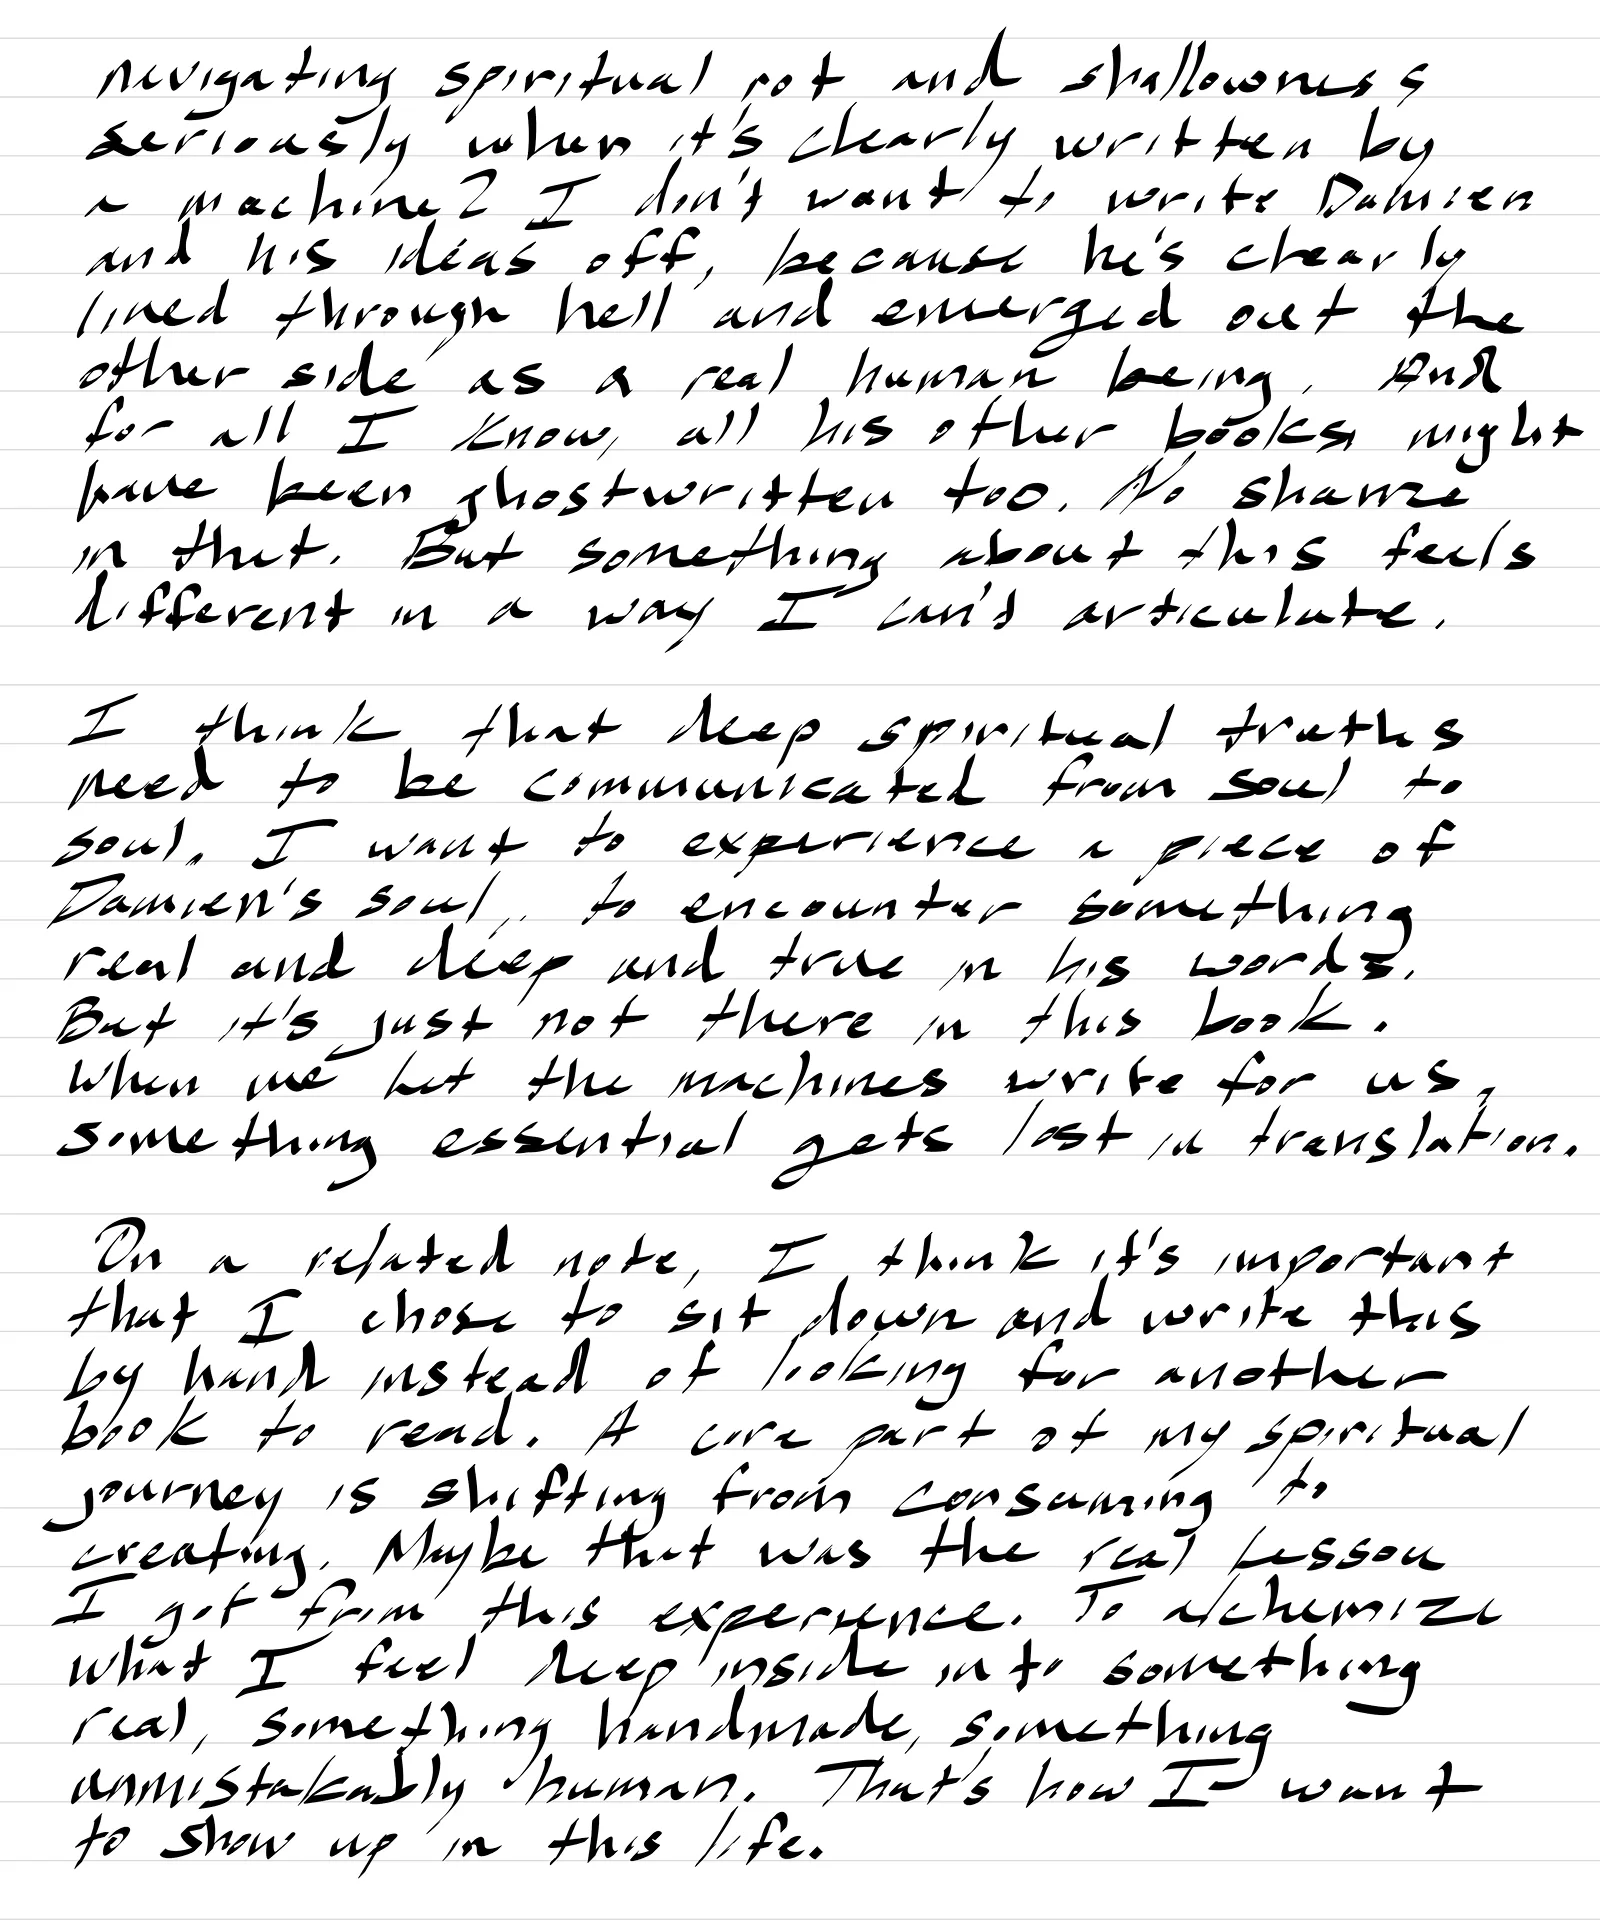 navigating spiritual rot and shallowness
seriously when it's clearly written by
a machine? I don't want to write Damien
and his ideas off, because he's clearly
lived through hell and emerged out the
other side as a real human being. And
for all I know, all his other books might
have been ghostwritten too. No shame
in that. But something about this feels
different in a way I can't articulate.

I think that deep spiritual truths
need to be communicated from soul to
soul. I want to experience a piece of
Damien's soul, to encounter something
real and deep and true in his words.
But it's just not there in this book.
When we let the machines write for us,
something essential gets lost in translation.

On a related note, I think it's important
that I chose to sit down and write this
by hand instead of looking for another
book to read. A core part of my spiritual
journey is shifting from consuming to
creating. Maybe that was the real lesson
I got from this experience. To alchemize
what I feel deep inside into something
real, something handmade, something
unmistakably human. That's how I want
to show up in this life.